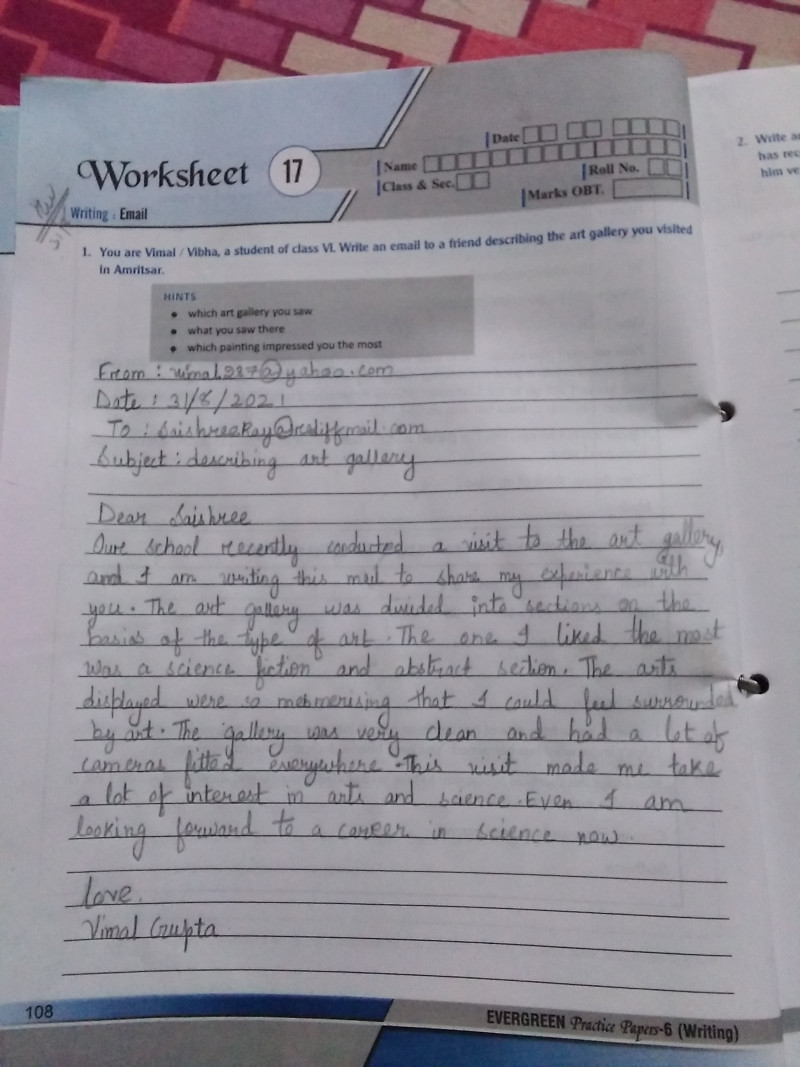 Worksheet 17
Date
Name
Class & Sec.
Roll No.
Marks OBT.
Writing : Email
1. You are Vimal / Vibha, a student of class VI. Write an email to a friend describing the art gallery you visited
in Amritsar.
HINTS
• which art gallery you saw
• what you saw there
• which painting impressed you the most
From : vimal287@yahoo.com
Date : 31/8/2021
To : SaishreeRay@rediffmail.com
Subject : describing art gallery
Dear Saishree
Our school recently conducted a visit to the art gallery,
and I am writing this mail to share my experience with
you. The art gallery was divided into sections on the
basis of the type of art. The one I liked the most
was a science fiction and abstract section. The arts
displayed were so mesmerising that I could feel surrounded
by art. The gallery was very clean and had a lot of
cameras fitted everywhere. This visit made me take
a lot of interest in arts and science. Even I am
looking forward to a career in science now.
love.
Vimal Gupta
108
EVERGREEN Practice Papers-6 (Writing)
2. Write
has rec
him ve